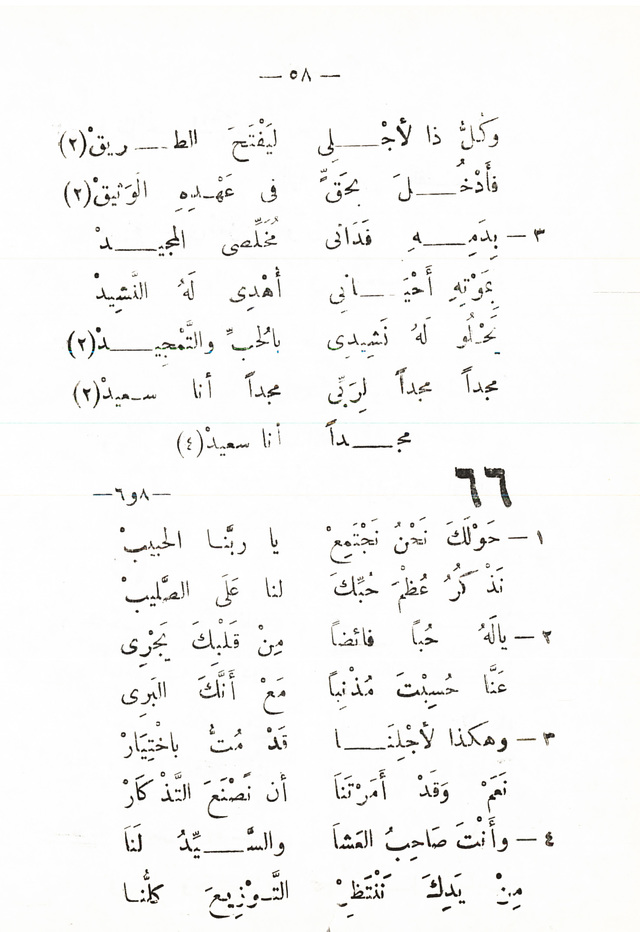 — ٥٨ —
وَكُلُّ ذا لأجْـــلِي لِيَفْتَحَ الطـــريقْ(٢)
فَأَدْخُـــلَ بِحَقٍّ فى عَهْـدِهِ الْوَثِيقْ(٢)
٣ — بِدَمِـــهِ فَدَانى مُخَلِّصى المجيـــدْ
بِمَوْتِهِ أَحْيَـــانِى أُهْدِى لَهُ النَّشِيدْ
يَحْلُو لَهُ نَشِيدِى بالْحُبِّ والتَّمْجِيـــدْ(٢)
مجداً مجداً لِرَبِّى مجداً أنا سـعيدْ(٢)
مجـــداً أنا سعيدْ(٤)
٦٦
—٨و٦—
١ — حَوْلَكَ نَحْنُ نَجْتَمِعْ يا ربَّنـا الحبيبْ
نَذْكُرُ عُظْمَ حُبِّكَ لنا عَلَى الصَّليبْ
٢ — يالَهُ حُباً فائضاً مِنْ قَلْبِكَ يَجْرِى
عَنَّا حُسِبْتَ مُذْنِباً مَعْ أَنَّكَ البَرِى
٣ — وهكذا لأجْلِنَـــا قَدْ مُتَّ باخْتِيَارْ
نَعَمْ وَقَدْ أَمَرْتَنَا أن نَصْنَعَ التَّذْكَارْ
٤ — وأَنْتَ صَاحِبُ العَشَا والسَّـــيِّدُ لَنَا
مِنْ يَدِكَ نَنْتَظِرْ التَّـوْزِيعَ كلُّنـا